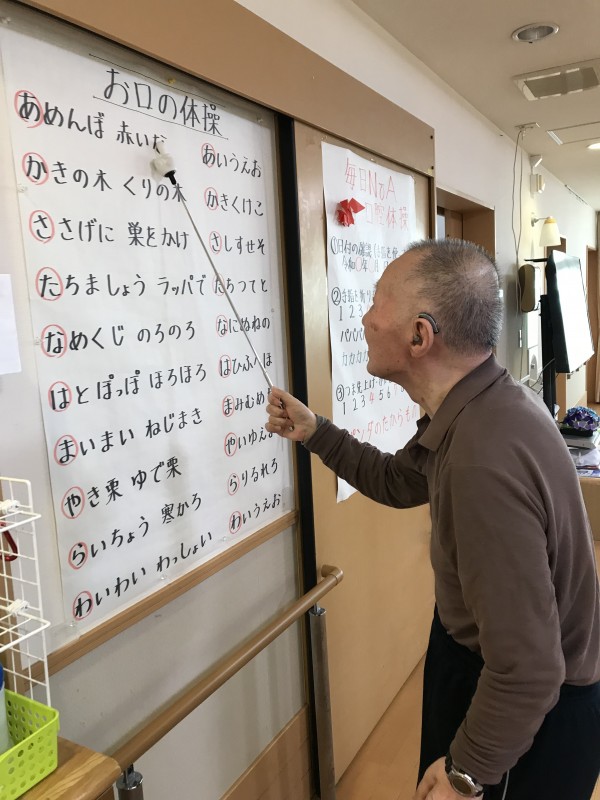 お口の体操
あめんば 赤いな あいうえお
かきの木 くりの木 かきくけこ
ささげに 巣をかけ さしすせそ
たちましょう ラッパで たちつてと
なめくじ のろのろ なにぬねの
はとぽっぽ ほろほろ はひふ ほ
まいまい ねじまき まみむめ
やき栗 ゆで栗 やいゆえ
らいちょう 寒かろ らりるれろ
わいわい わっしょい わいうえお
毎日NoA
口腔体操
①日付の確認
令和 年 月
②
1 2 3
パパパ
カカカ
③
1 2 3 4 5 6
パンダのたからもの